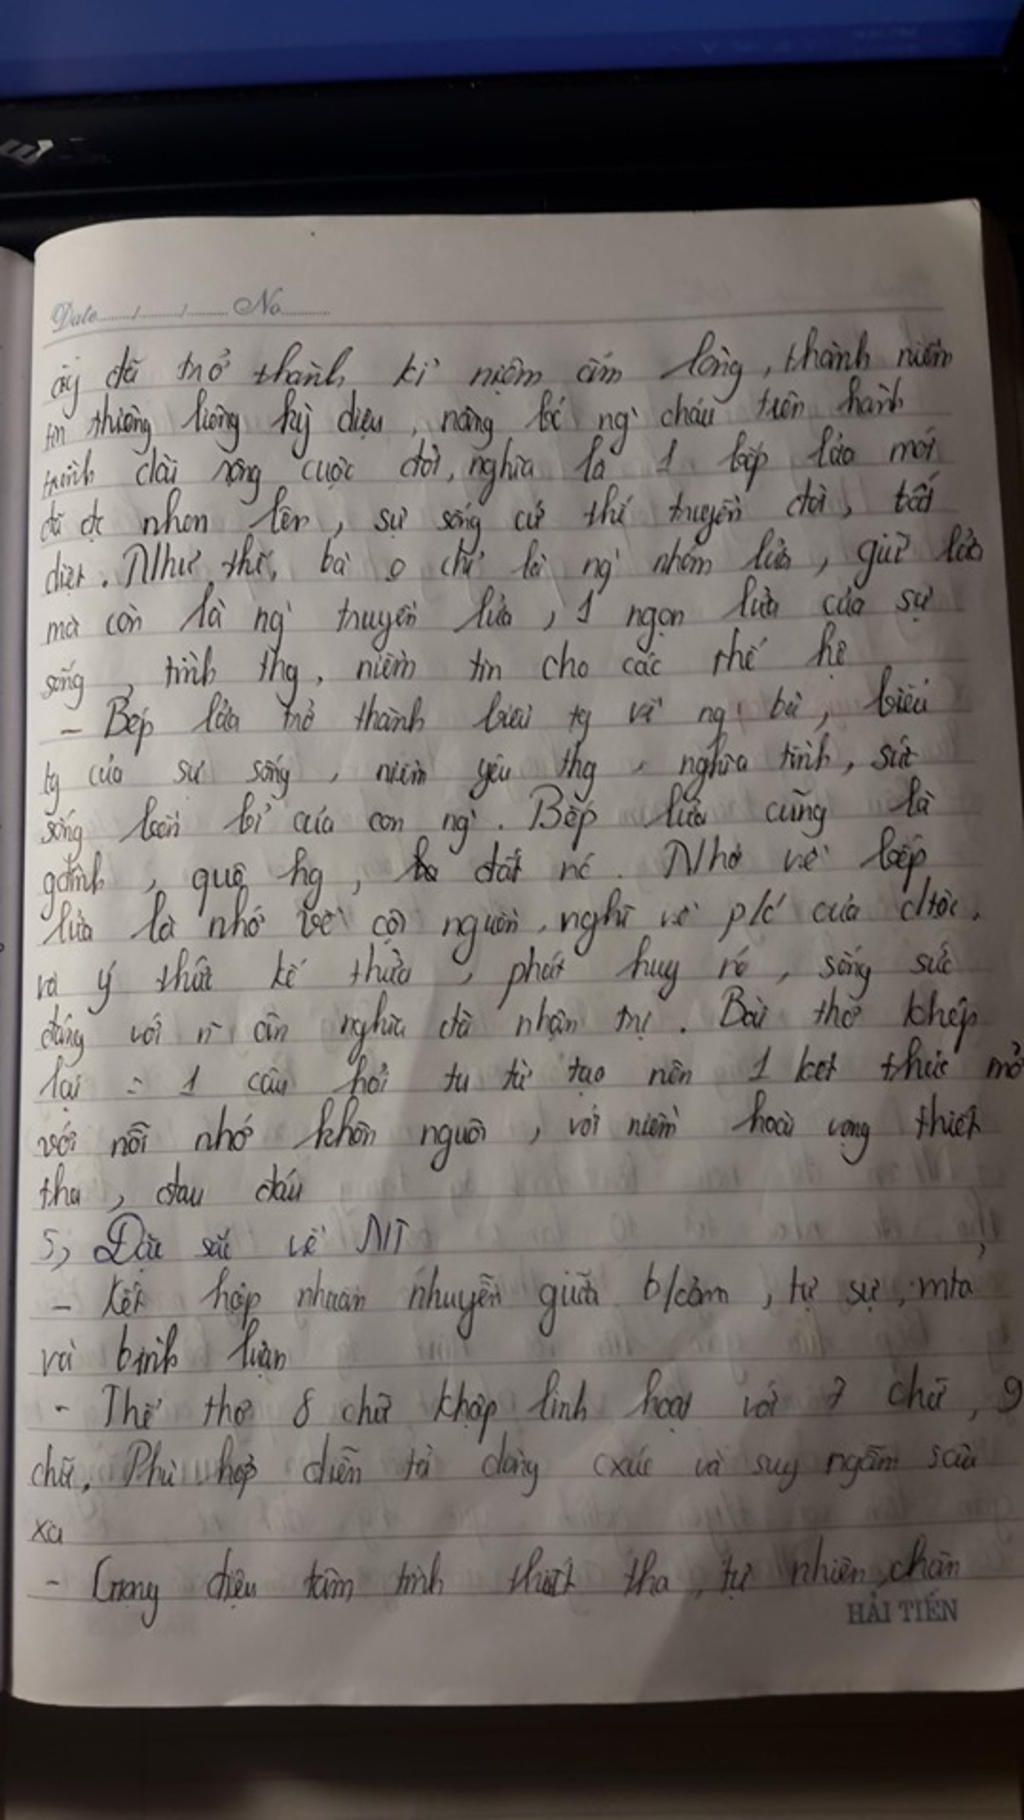 Date....../......../......... No..........
ấy đã trở thành kỉ niệm ấm lòng, thành niềm
tin thiêng liêng kỳ diệu, nâng bc ng` cháu trên hành
trình dài rộng cuộc đời, nghĩa là 1 bếp lửa mới
đã đc nhen lên, sự sống cứ thế truyền đời, bất
diệt. Như thế, bà o chỉ là ng` nhóm lửa, giữ lửa
mà còn là ng` truyền lửa, 1 ngọn lửa của sự
sống, tình thg, niềm tin cho các thế hệ
- Bếp lửa trở thành biểu tg về ng` bà, biểu
tg của sự sống, niềm yêu thg, nghĩa tình, sức
sống bền bỉ của con ng`. Bếp lửa cũng là
gđình, quê hg, đất nc. Nhớ về bếp
lửa là nhớ về cội nguồn, nghĩ về p/c của dtộc,
và ý thức kế thừa, phát huy nó, sống xứng
đáng với n~ ân nghĩa đã nhận trị. Bài thơ khép
lại = 1 câu hỏi tu từ tạo nên 1 kết thúc mở
với nỗi nhớ khôn nguôi, với niềm hoài vọng thiết
tha, đau đáu
5, Đặc sắc về NT
- Kết hợp nhuần nhuyễn giữa b/cảm, tự sự, mtả
và bình luận
- Thể thơ 8 chữ khớp linh hoạt với 7 chữ, 9
chữ. Phù hợp diễn tả dòng cxúc và suy ngẫm sâu
xa
- Giọng điệu tâm tình thiết tha, tự nhiên, chân
HẢI TIẾN